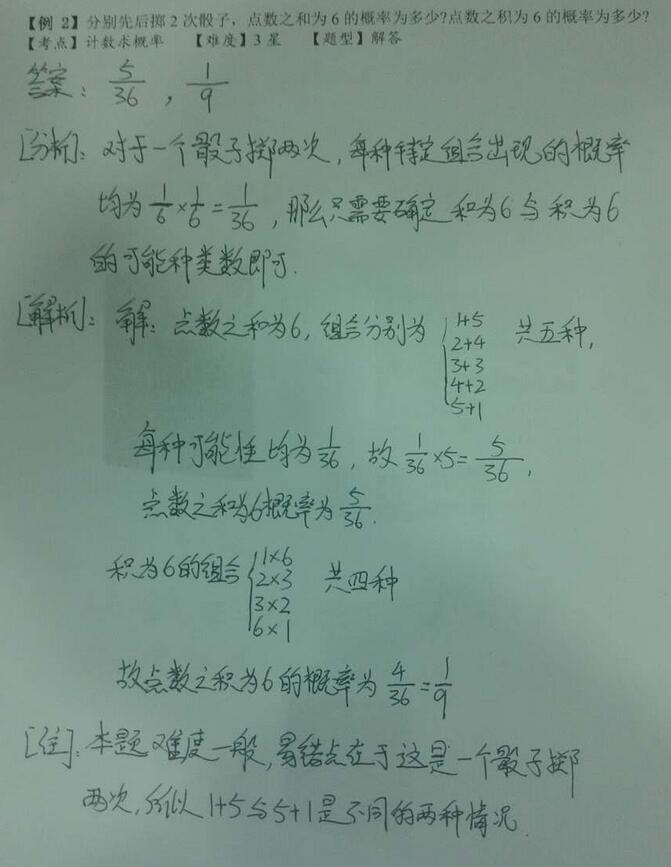 【例 2】分别先后掷 2 次骰子，点数之和为 6 的概率为多少?点数之积为 6 的概率为多少?
【考点】计数求概率 【难度】3 星 【题型】解答
答案：5/36，1/9
[分析]：对于一个骰子掷两次，每种特定组合出现的概率
均为1/6×1/6=1/36，那么只需要确定和为6与积为6
的可能种类数即可.
[解析]：解：点数之和为6，组合分别为 { 1+5 共五种,
2+4
3+3
4+2
5+1
每种可能性均为1/36，故1/36×5=5/36,
点数之和为6概率为5/36.
积为6的组合 { 1×6
2×3 共四种
3×2
6×1
故点数之积为6的概率为4/36=1/9
[注]：本题难度一般，易错点在于这是一个骰子掷
两次，所以1+5与5+1是不同的两种情况.